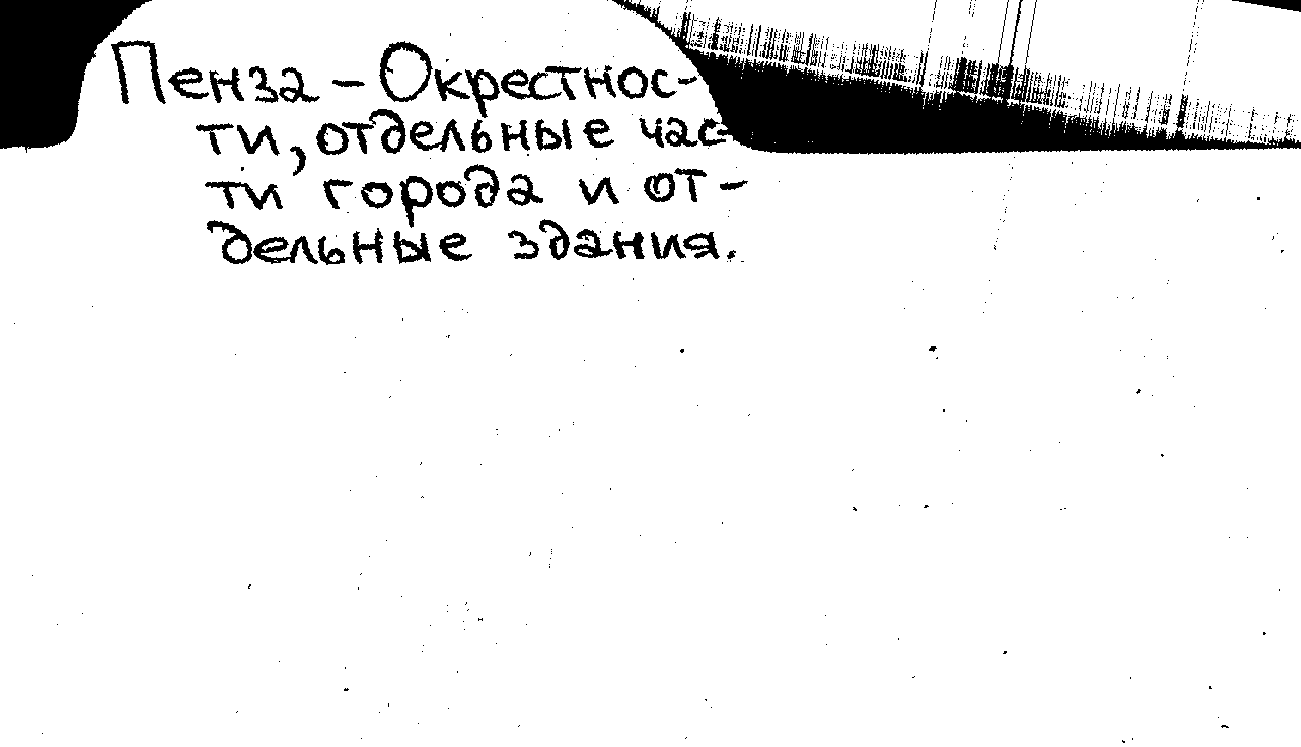 Пенза – Окрестнос-
ти, отдельные час-
ти города и от-
дельные здания.